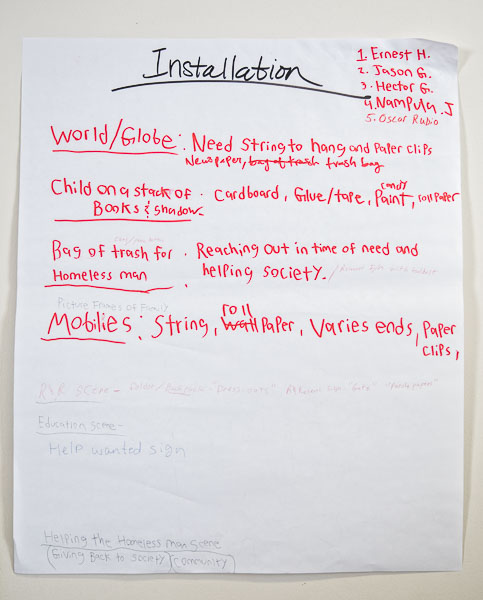 Installation
1. Ernest H.
2. Jason G.
3. Hector G.
4. Nampula. J
5. Oscar Rubio
World/Globe: Need String to hang and Paper clips
Newspaper, bag of trash trash bag
Child on a stack of Books & shadow. Cardboard, Glue/tape, Paint, candy roll Paper
Bag of trash for Homeless man : Reaching out in time of need and helping society.
Picture Frames of Family
Mobilies: String, wall roll Paper, Varies ends, Paper clips,
R&R Scene-
Education Scene-
Help wanted sign
Helping the Homeless man Scene
(Giving Back to society) (Community)